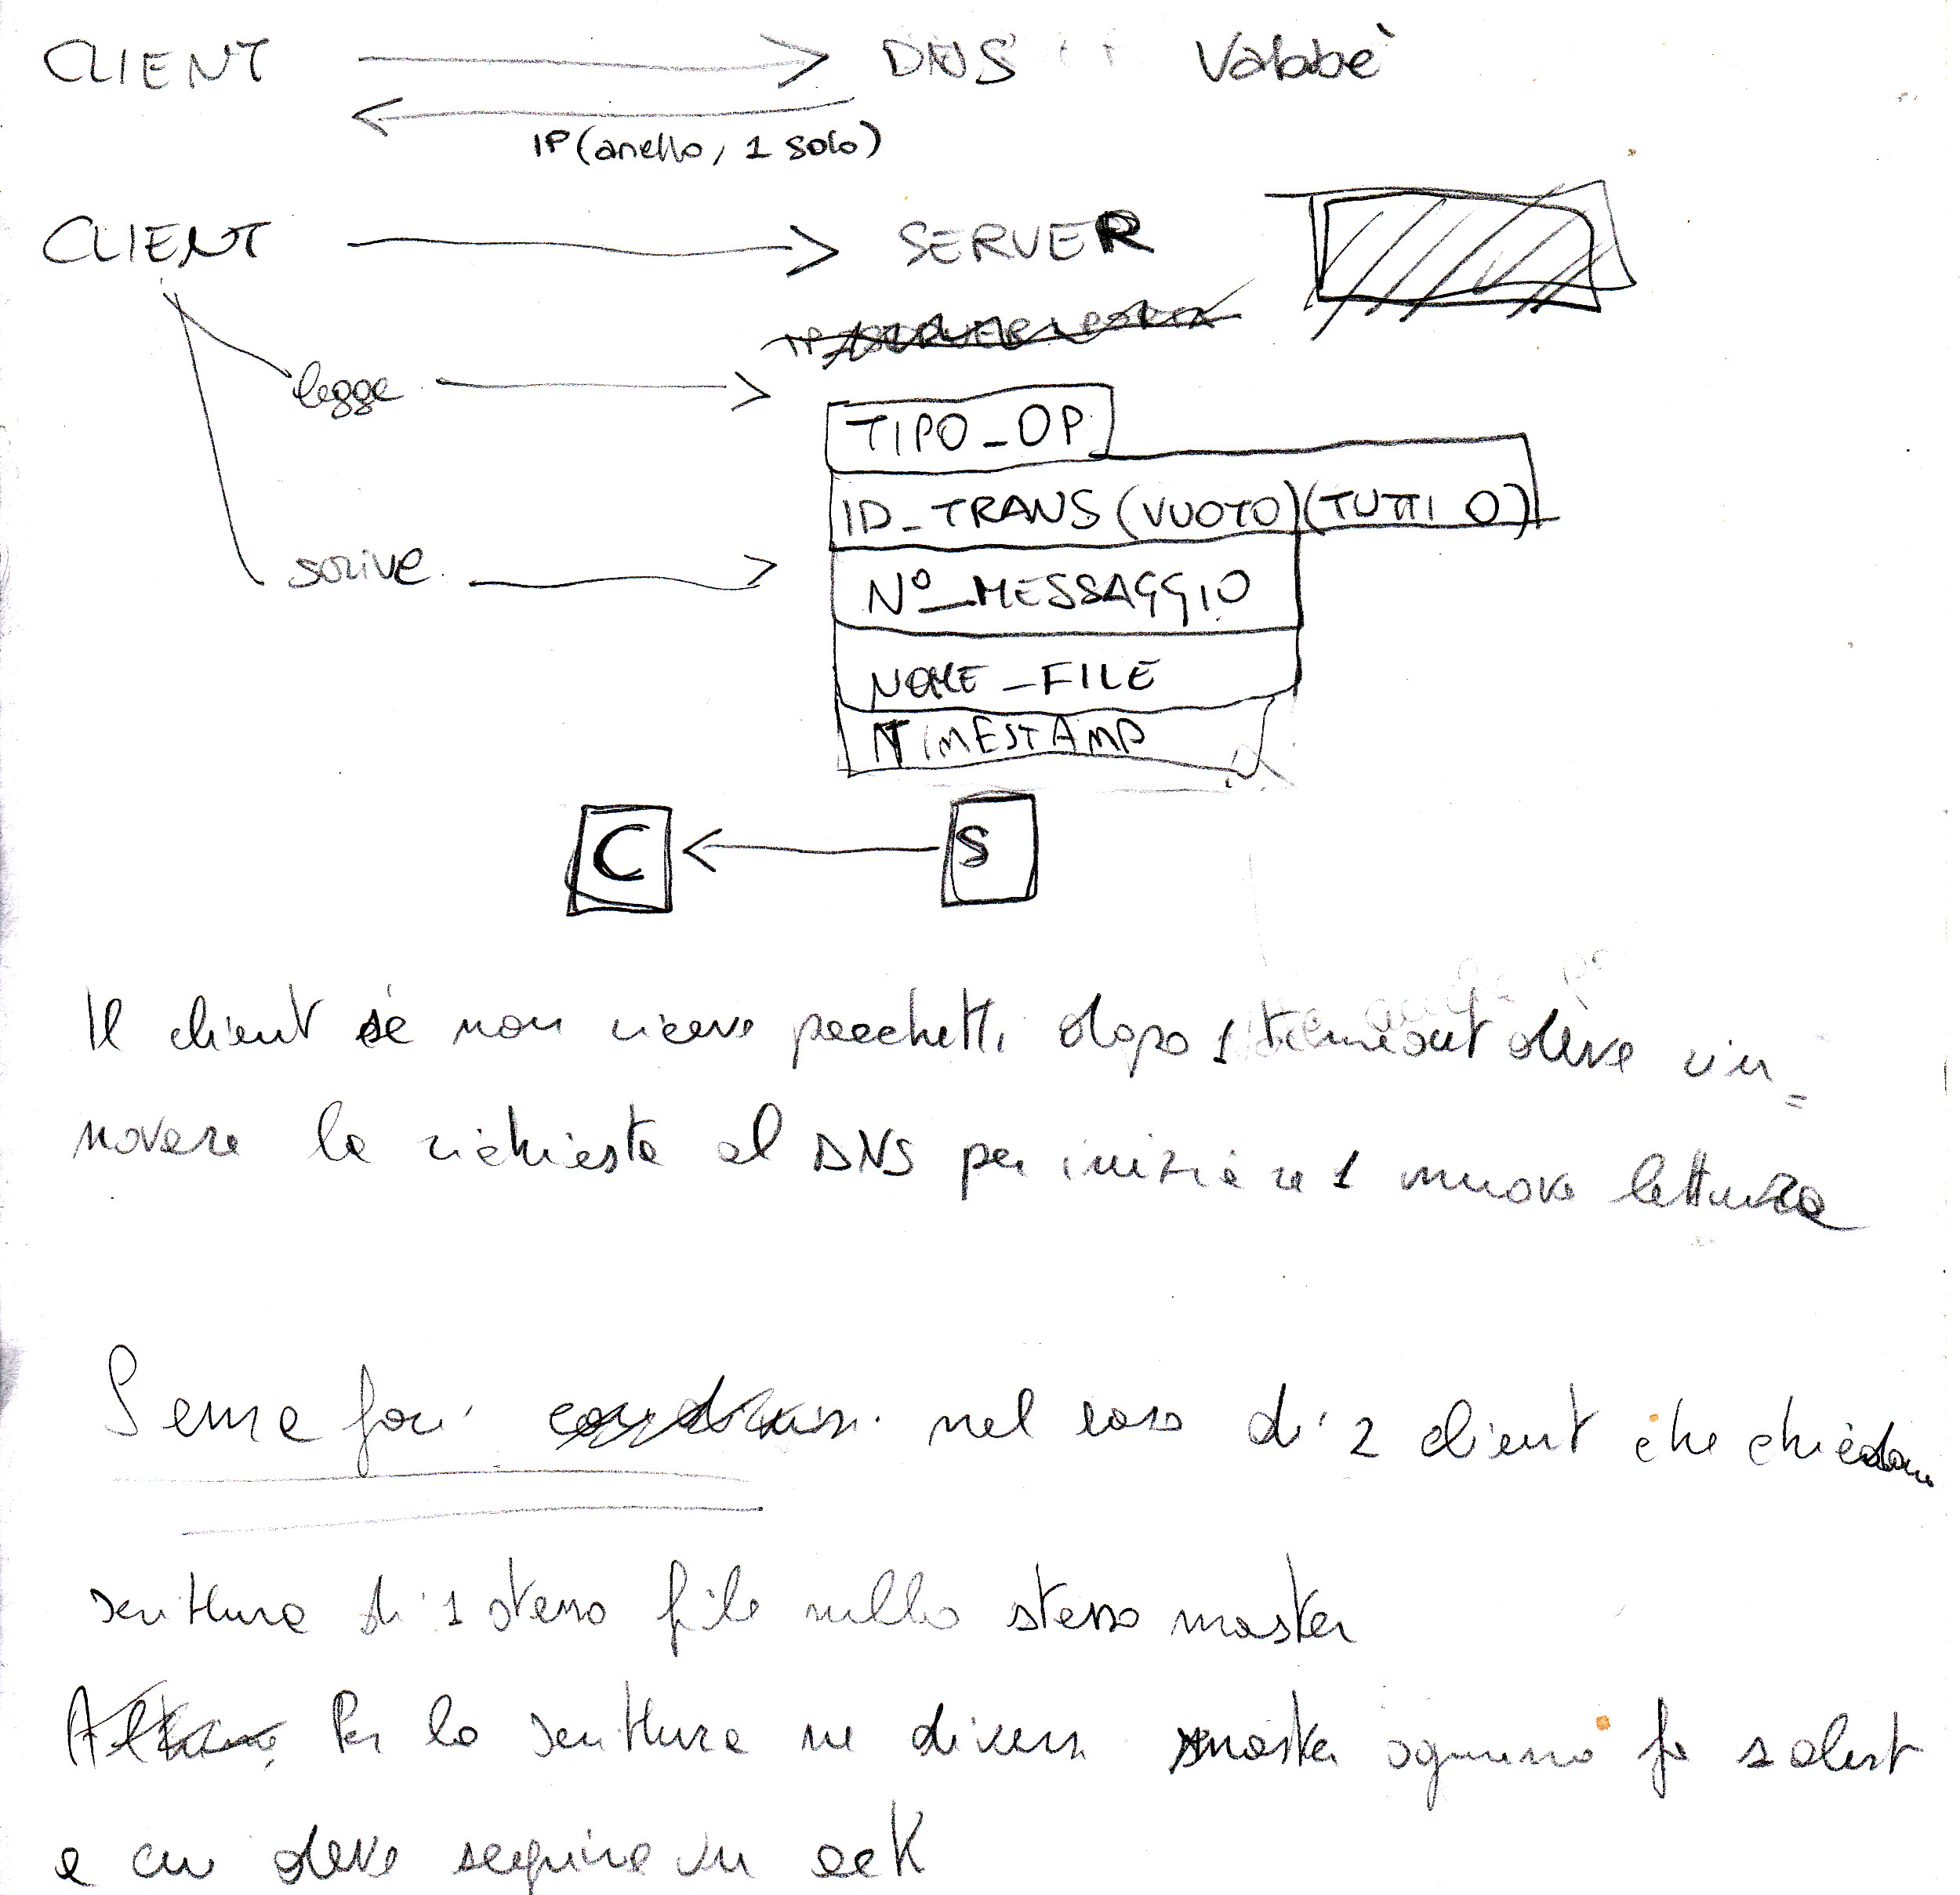 CLIENT DNS Vabbè
IP (anello, 1 solo)
CLIENT SERVER
legge
TIPO_OP
ID_TRANS (VUOTO) (TUTTI 0)
scrive
N°_MESSAGGIO
NOME_FILE
TIMESTAMP
C S
Il client se non riceve pacchetti dopo 1 timeout deve rin=
novare la richiesta al DNS per iniziare 1 nuova lettura
Semafori nel caso di 2 client che chiedono
scrittura di 1 stesso file sullo stesso master
Per la scrittura su diversi master ognuno fa 1 alert
a cui deve seguire un ack